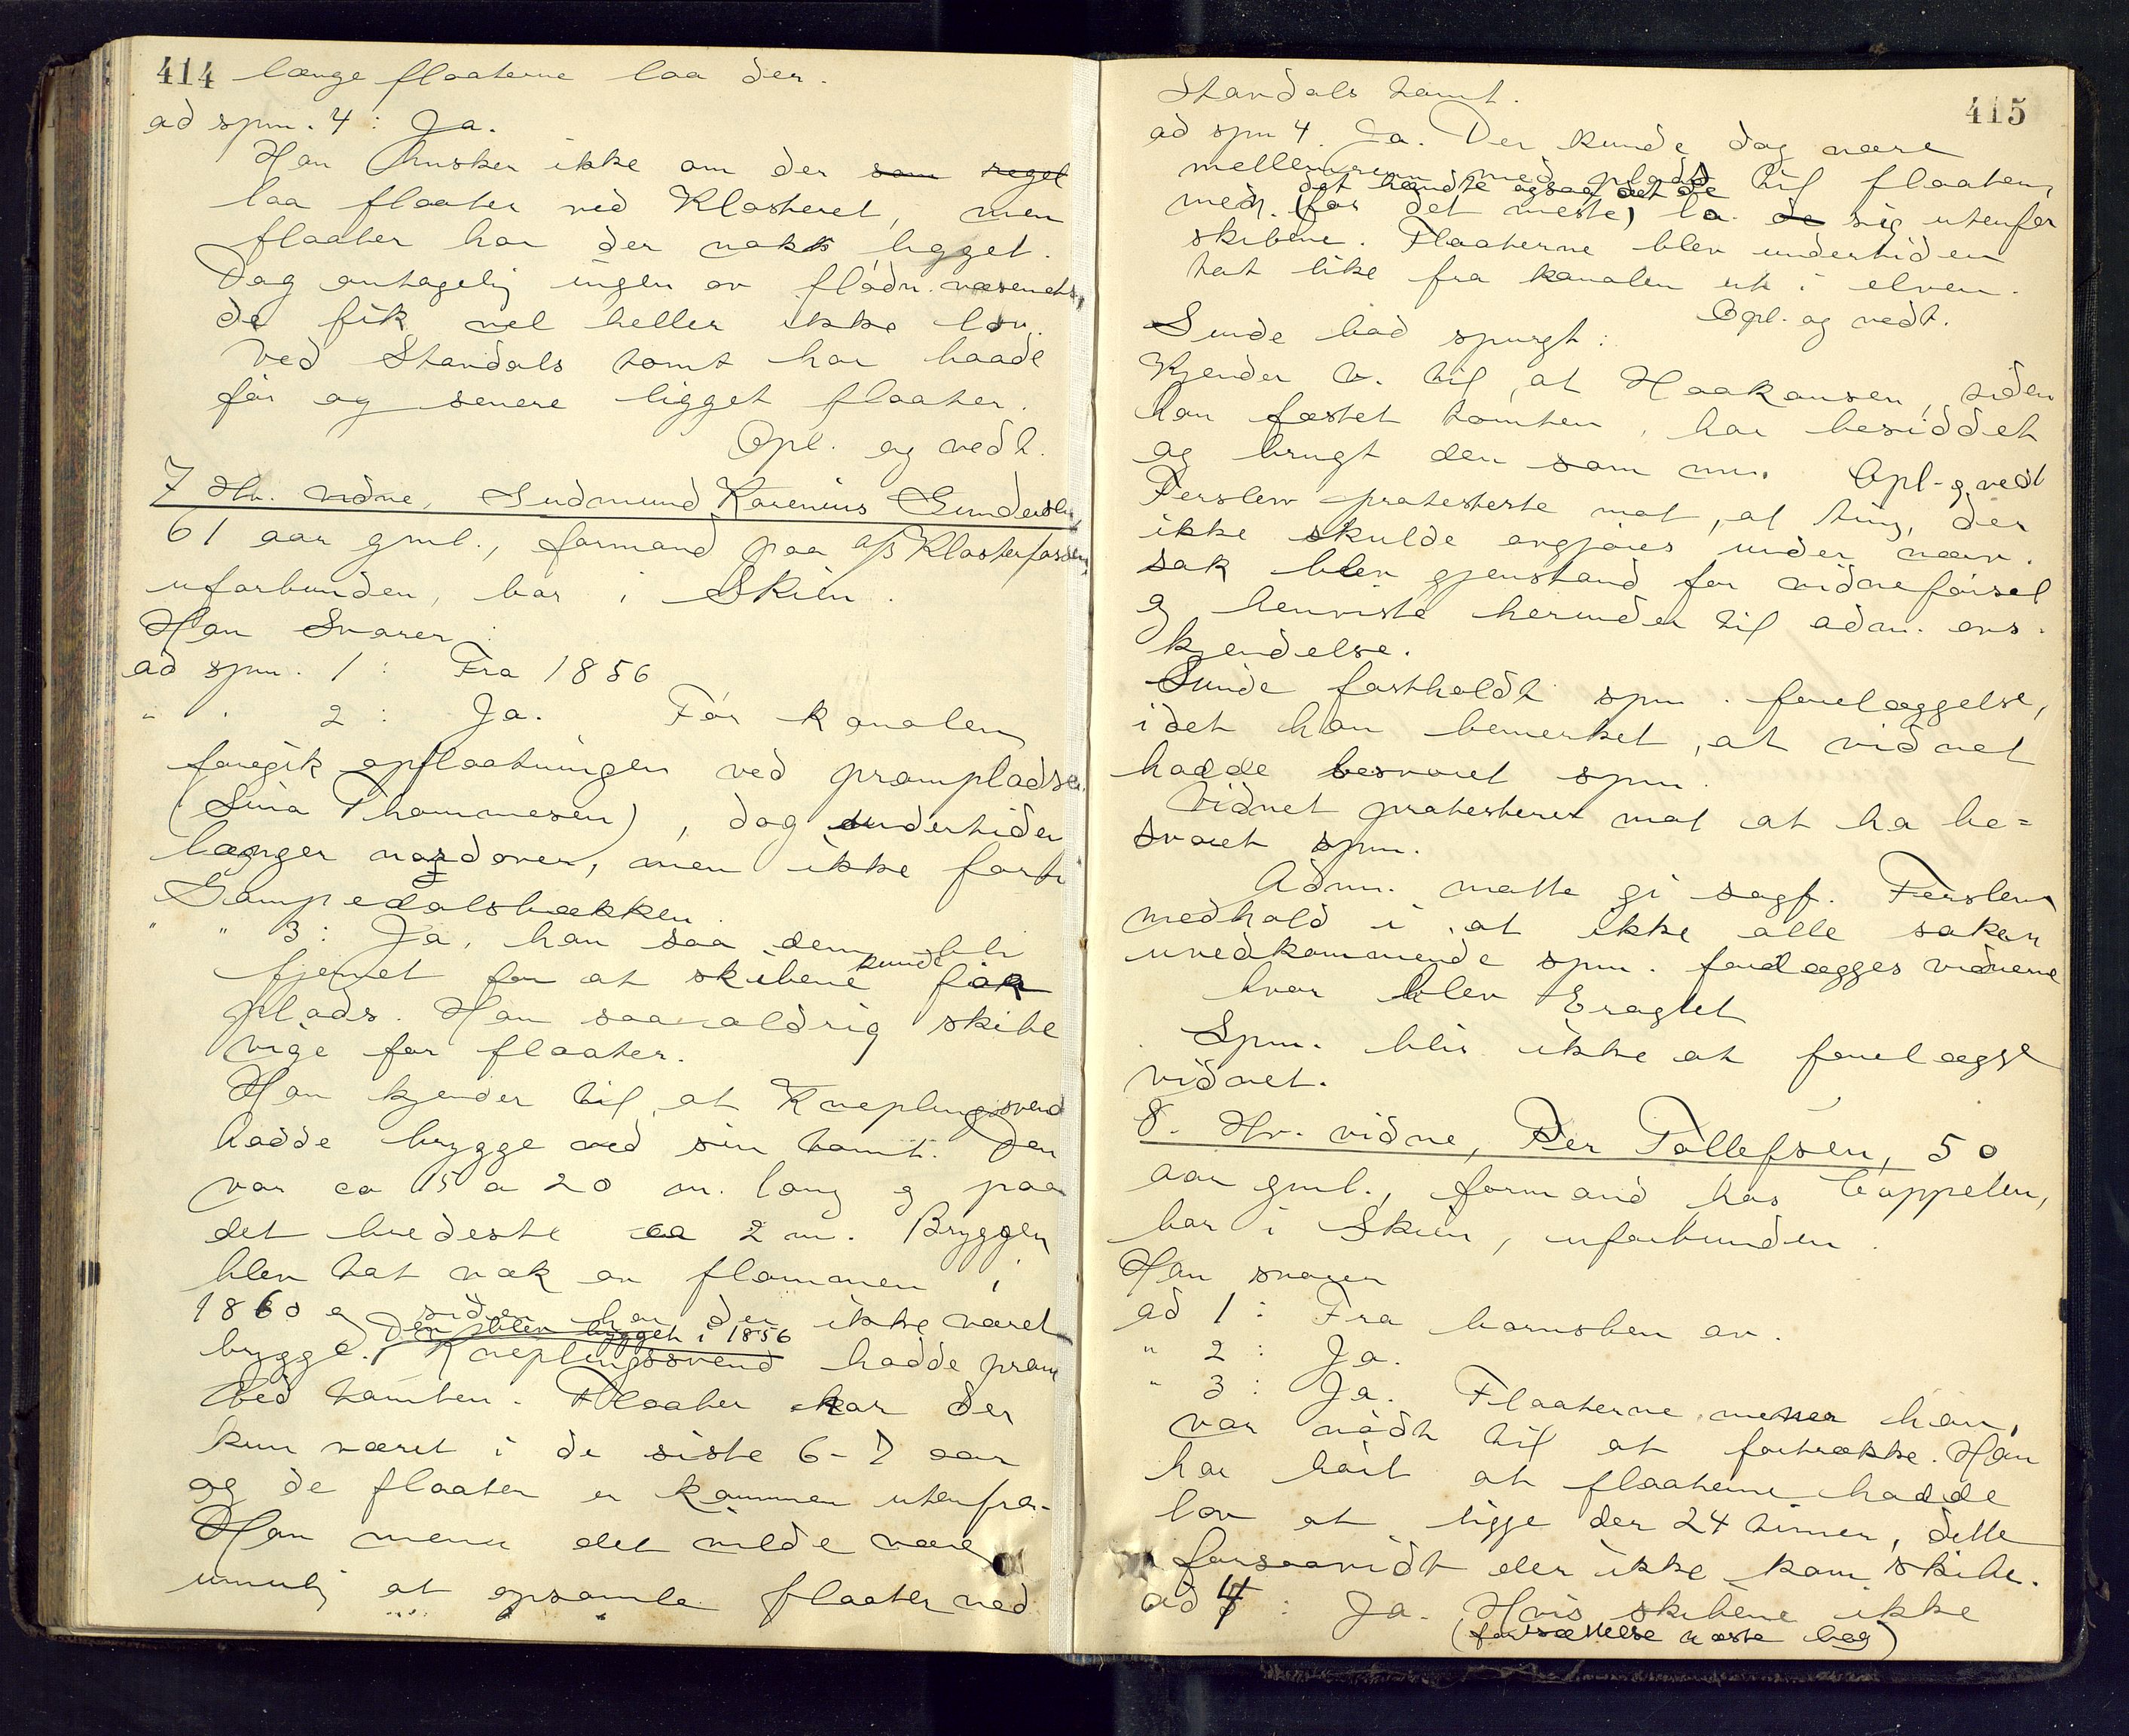 414 længe flaaterne laa der.
ad spm. 4 : Ja.
Han husker ikke om der som regel
laa flaater ved Klosteret, men
flaater har der nokk ligget.
Dog antagelig ingen av flødn.væsenets,
de fik vel heller ikke lov.
Ved Standals tomt har baade
før og senere ligget flaater.
Opl. og vedt.
7 Hv. vidne, Gudmund Karenius Gundersen,
61 aar gml., formand paa A/S Klosterfossen,
uforbunden, bor i Skien.
Han Svarer :
ad spm. 1 : Fra 1856
" . 2 : Ja. Før kanalen
foregik opflaatningen ved prampladsen
(Sina Thommesen), dog undertiden
længer nordover, men ikke forbi
Gampedalsbækken.
" " 3 : Ja, han saa dem bli
fjernet for at skibene kunde faa
plads. Han saa aldrig skibe
vige for flaater.
Han kjender til, at Kneplingsvend
hadde brygge ved sin tomt. Den
var ca 15 a 20 m. lang og paa
det bredeste ca 2 m. Bryggen
blev tat væk av flommen i
1860 og siden har der ikke været
Den blev bygget i 1856
brygge. Kneplingssvend hadde pram
ved tomten. Flaater har der
kun været i de siste 6-7 aar
og de flaater er kommen utenfra.
Han mener det vilde være
umulig at opsamle flaater ved
415
Standals tomt.
ad spm 4. Ja. Der kunde dog være
mellemrum med plads til flaaten,
det hændte ogsaa at de
men (for det meste) la de sig utenfor
skibene. Flaaterne blev undertiden
tat like fra kanalen ut i elven.
Opl. og vedt.
Sunde bad spurgt :
Kjender v. til, at Haakonsen, siden
han fæstet tomten, har besiddet
og brugt den som nu. Opl. og vedt
Ferslew protesterte mot, at ting, der
ikke skulde avgjøres under nærv.
sak blev gjenstand for vidneførsel
og henviste herunder til adm. avs.
kjendelse.
Sunde fastholdt spm. forelæggelse,
idet han bemerket, at vidnet
hadde besvaret spm.
Vidnet protesterer mot at ha be=
svaret spm.
Adm. maatte gi sagf. Ferslew
medhold i, at ikke alle saken
uvedkommende spm. forelægges vidnerne
hvor blev Eragtet
Spm. blir ikke at forelægge
vidnet.
8. Hv. vidne, Per Tollefsen, 50
aar gml., formand hos Cappelen,
bor i Skien, uforbunden.
Han svarer
ad 1 : Fra barnsben av.
" 2 : Ja.
" 3 : Ja. Flaaterne, mener han,
var nødt til at fortrække. Han
har hørt at flaaterne hadde
lov at ligge der 24 timer, dette
forsaavidt der ikke kom skibe.
ad 4 : Ja. Hvis skibene ikke
(fortsættelse næste bog)